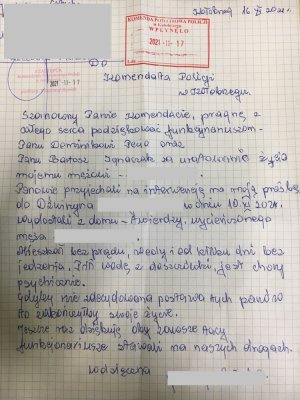 Kołobrzeg 16 XI 2021
KOMENDA POWIATOWA POLICJI
w Kołobrzegu
WPŁYNĘŁO
2021 -11- 17
2021 -11- 17
Do
Komendanta Policji
w Kołobrzegu.
Szanowny Panie Komendancie, pragnę z
całego serca podziękować funkcjonariuszom -
Panu Dominikowi oraz
Panu Bartosz Ignaczak za uratowanie życia
mojemu mężowi -
Panowie przyjechali na interwencję na moją prośbę
do Dźwirzyna w dniu 10.XI 2021.
wydostali z domu - twierdzy, wycieńczonego
męża
Mieszkał bez prądu, wody i od kilku dni bez
jedzenia. Pił wodę z deszczówki, jest chory
psychicznie.
Gdyby nie zdecydowana postawa tych panów
to zakończyłby swoje życie.
Jeszcze raz dziękuję, oby zawsze tacy
funkcjonariusze stawali na naszych drogach.
Wdzięczna